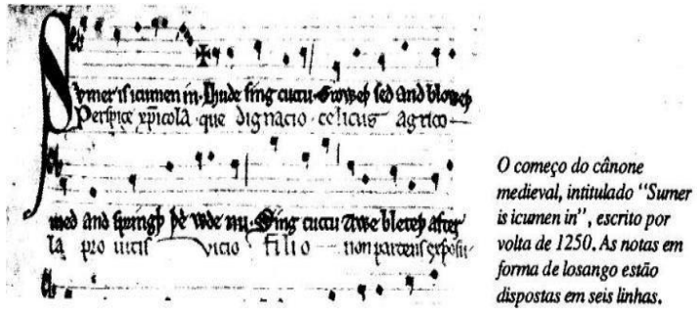 Sumer is icumen in. Lhude sing cuccu. Groweþ sed and bloweþ
Perspice xpicola que dignacio celicus agrico
med and springþ þe wde nu. Sing cuccu Awe bleteþ after
la pro uitis vicio filio non parcens exposu
O começo do cânone
medieval, intitulado “Sumer
is icumen in”, escrito por
volta de 1250. As notas em
forma de losango estão
dispostas em seis linhas.